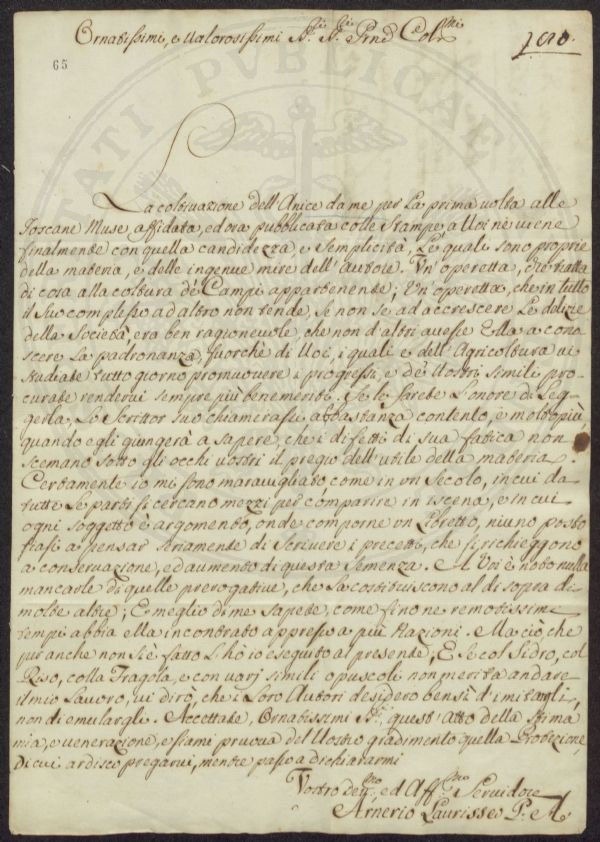 Ornatissimi, e valorosissimi SS.ri SS.ri Prnd Col.mi
1780.
65
La coltivazione dell'Anice da me per la prima volta alle
Toscane Muse affidata, ed ora pubblicata colle Stampe, a Voi ne viene
finalmente con quella candidezza, e semplicità, Le quali sono proprie
della materia, e delle ingenue mire dell'autore. Un'operetta, che tratta
di cosa alla coltura de' Campi appartenente; Un'operetta, che in tutto
il suo complesso ad altro non tende, se non se ad accrescere Le delizie
della Società, era ben ragionevole, che non d'altri avesse Ella a cono=
scere La padronanza, fuorchè di Voi, i quali e dell'Agricoltura vi
studiate tutto giorno promuovere i progressi, e de' Vostri simili pro=
curate rendervi sempre più benemeriti. Se le farete L'onore di Leg=
gerla, Lo Scrittor suo chiamerassi abbastanza contento, e molto più
quando egli giungerà a sapere, che i difetti di sua fatica non
scemano sotto gli occhi vostri il pregio dell'utile della materia.
Certamente io mi sono maravigliato come in un Secolo, in cui da
tutte Le parti si cercano mezzi per comparire in iscena, e in cui
ogni soggetto è argomento, onde comporne un Libretto, niuno posto
siasi a pensar seriamente di scrivere i precetti, che si richieggono
a conservazione, ed aumento di questa Semenza. E a Voi è noto nulla
mancarle di quelle prerogative, che La costituiscono al di sopra di
molte altre; E meglio di me sapete, come fino ne' remotissimi
tempi abbia ella incontrato appresso a più Nazioni. Ma ciò, che
pur anche non si è fatto L'hò io eseguito al presente, E se col Sidro, col
Riso, colla Fragola, e con varj simili opuscoli non merita andare
il mio Lavoro, vi dirò, che i Loro Autori desidero bensì d'imitargli,
non di emulargli. Accettate, Ornatissimi SS.ri, quest'atto della stima
mia, e venerazione, e siami pruova del Vostro gradimento quella Protezione,
Di cui ardisco pregarvi, mentre passo a dichiararmi
Vostro dev.mo, ed Aff.mo Servidore
Arnerio Laurisseo P. A.
STATI PUBLICAE